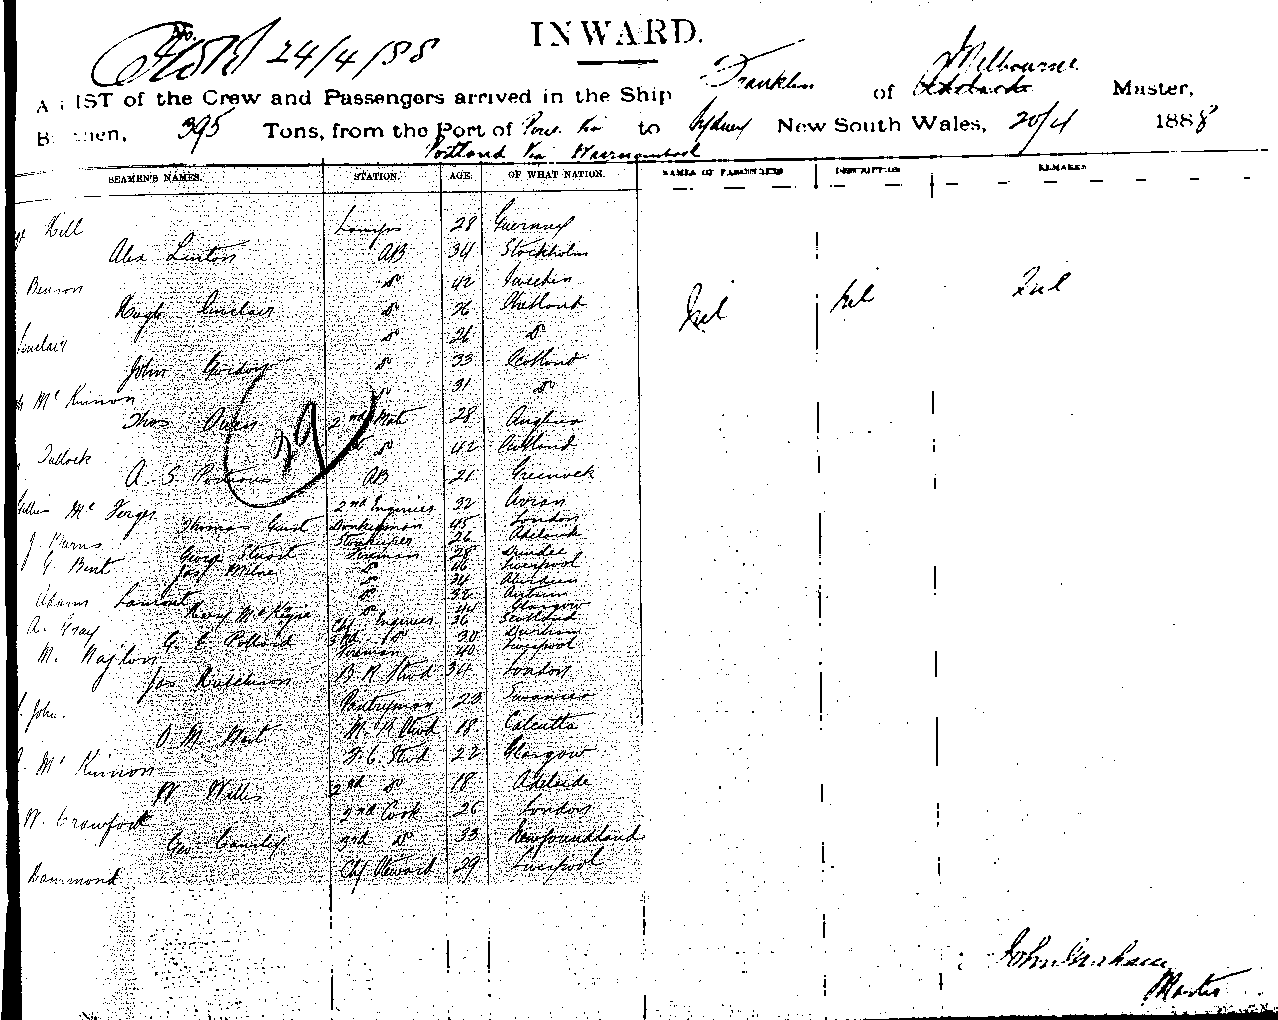 INWARD.
24/4/88
Franklin of Melbourne
A LIST of the Crew and Passengers arrived in the Ship Master,
Burthen, 395 Tons, from the Port of to Sydney New South Wales, 20/4 1888
Portland Via Warrnambool
SEAMEN'S NAMES. STATION. AGE. OF WHAT NATION. NAMES OF PASSENGERS DESCRIPTION REMARKS
Hill Lamps 28 Guernsey
Alex Linton AB 34 Stockholm
Benson Do 42
Hugh Sinclair Do 26 Shetland Nil Nil Nil
Sinclair Do 26 Do
John Gordon Do 33 Scotland
Mc Kinnon Do 31 Do
Thos Owen 2nd Mate 28
Tulloch Do 42
A. S. Porteous AB 21 Greenock
29
2nd Engineer 32
Thomas Donkeyman 45 London
J Storekeeper 26 Adelaide
George Stuart Fireman 28 Dundee
G. Bent Do 46 Liverpool
Jas Milne Do 34 Aberdeen
Adams Lamont Do 32
Henry Do 44 Glasgow
A. Gray Chf Engineer 36 Scotland
G. E. Pollard 3rd Do 30
M. Fireman 40 Liverpool
Jas Hutchison B. R Stwd 34 London
John. Pantryman 23 Swansea
M. R Stwd 18 Calcutta
Mc Kinnon F. C. Stwd 22 Glasgow
W Willis 2nd Do 18 Adelaide
W. Crawford 2nd Cook 26 London
Geo 3rd Do 33 Newfoundland
Hammond Chf Steward 29 Liverpool
John Graham
Master